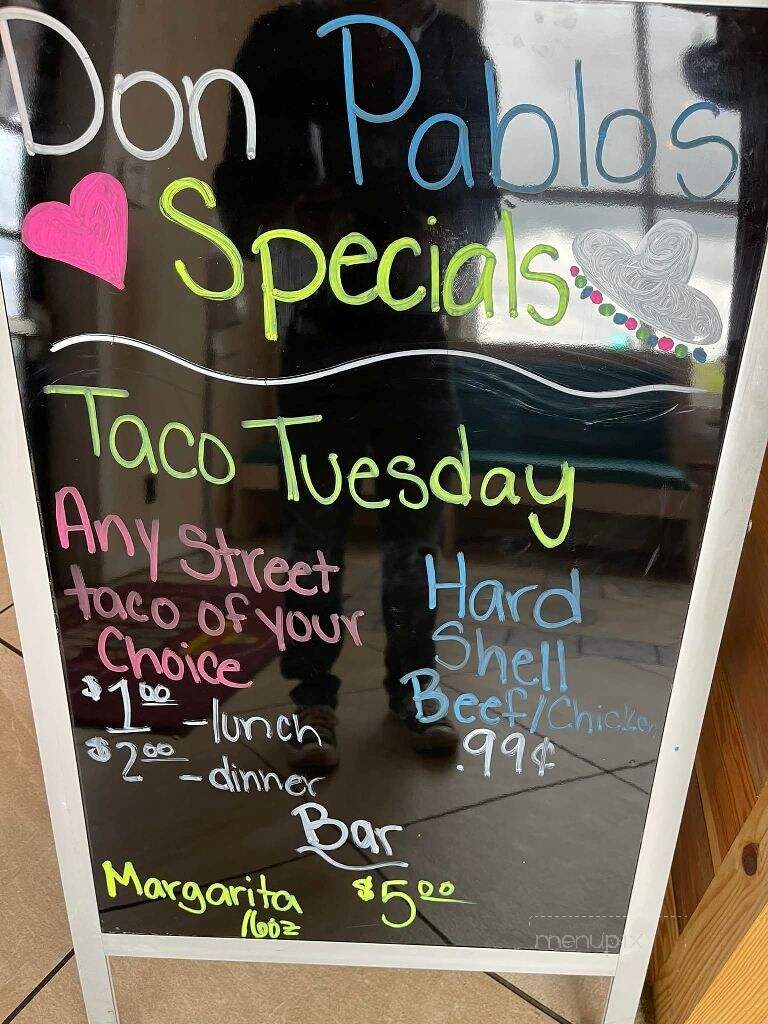 Don Pablos
Specials
Taco Tuesday
Any Street
taco of your
Choice
$1.00 -lunch
$2.00 -dinner
Hard
Shell
Beef/Chicken
.99¢
Bar
Margarita $5.00
16oz
menupix